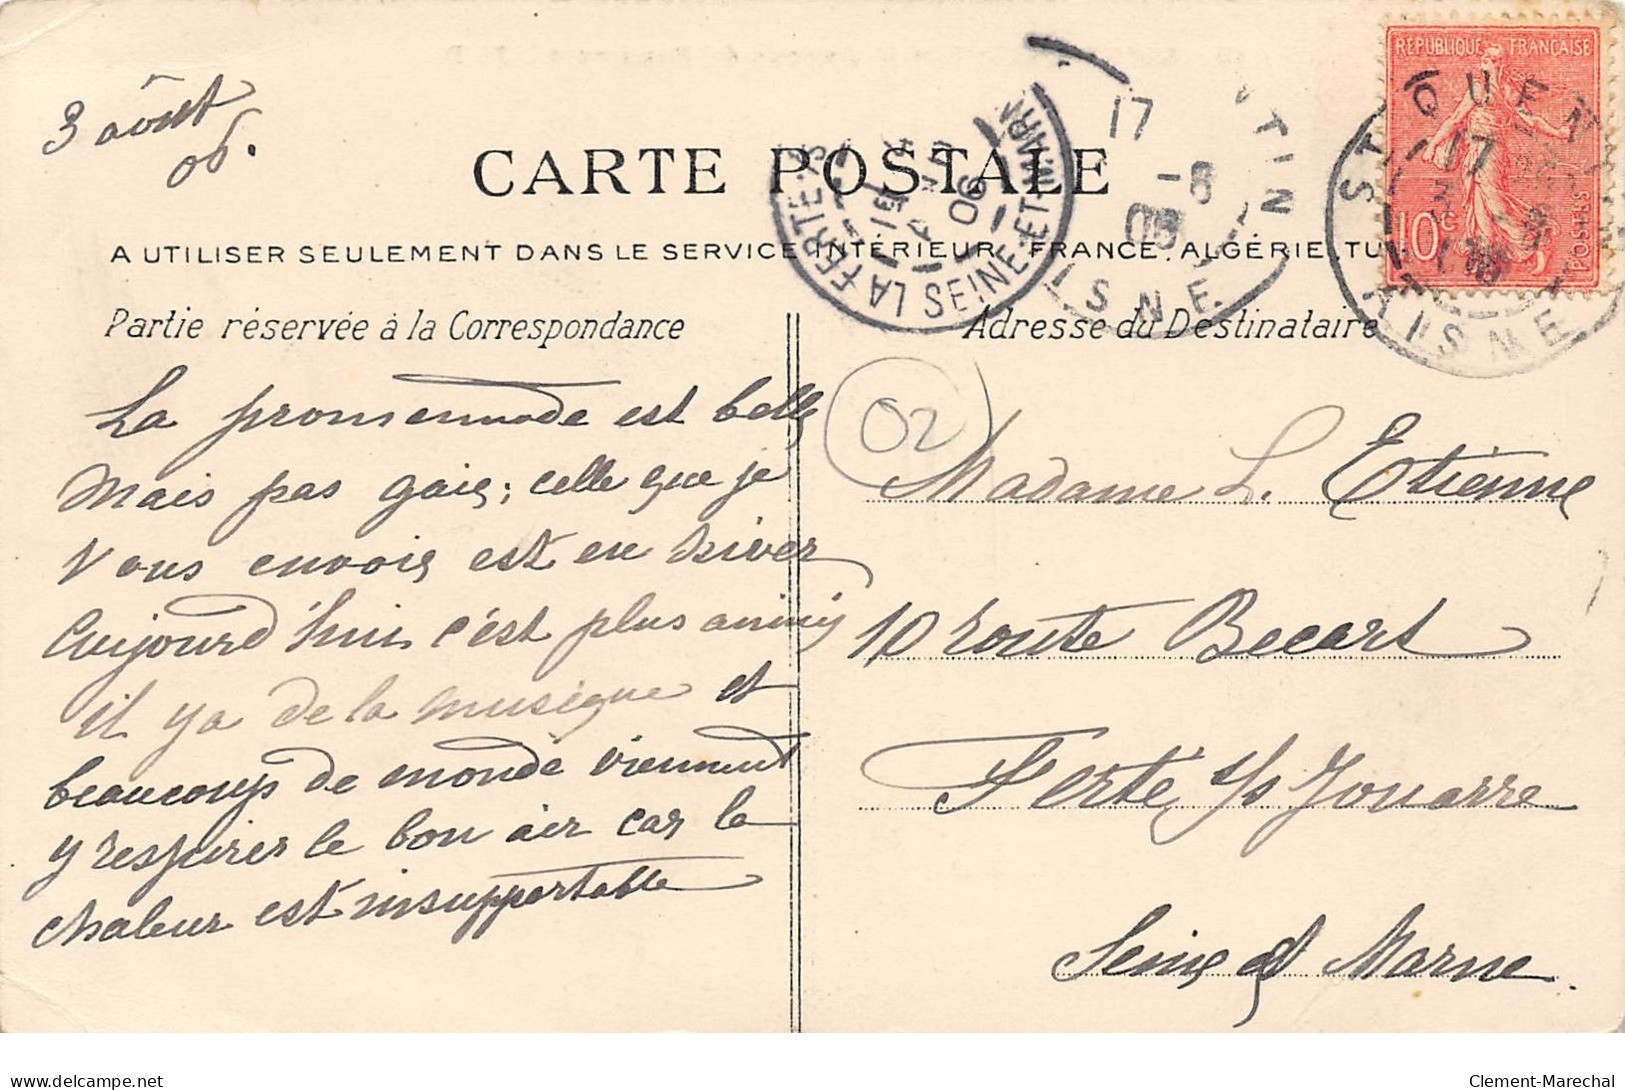 3 août
06.
CARTE POSTALE
A UTILISER SEULEMENT DANS LE SERVICE INTÉRIEUR, FRANCE. ALGÉRIE, TU
Partie réservée à la Correspondance
La promennade est belle
Mais pas gaie; celle que je
vous envoie est en hiver
Aujourd'hui c'est plus animé
il y a de la musique et
beaucoup de monde viennent
y respirer le bon air car la
chaleur est insupportable
Adresse du Destinataire
02
Madame L. Etienne
10 route Becart
Ferté s/s Jouarre
Seine et Marne.
RÉPUBLIQUE FRANÇAISE
10c
POSTES
ST QUENTIN
17
AISNE
17
-8
06
TIN
ISNE
LA FERTE-S
06
SEINE-ET-MARNE
delcampe.net
Clement-Marechal